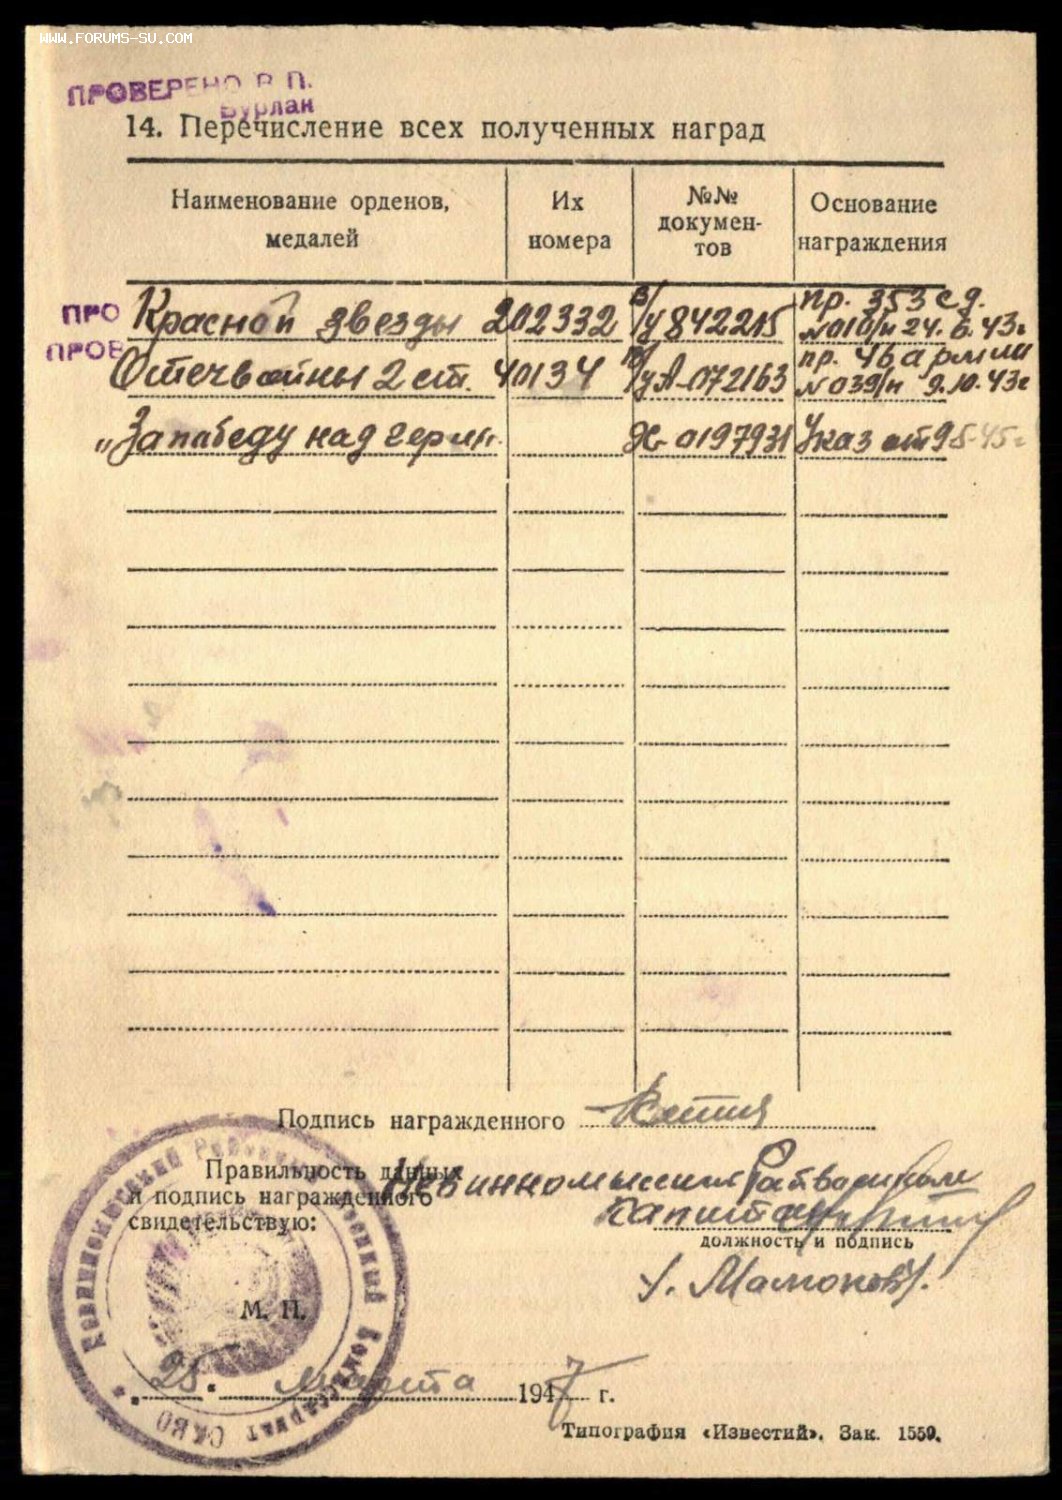 WWW.FORUMS-SU.COM
ПРОВЕРЕНО В. П.
Бурлан
14. Перечисление всех полученных наград
Наименование орденов, медалей
Их номера
№№ докумен-тов
Основание награждения
ПРО Красной звезды 202332 842215 пр. 353 сд. №010/н 24.6.43г
ПРОВ Отечвойны 2 ст. 40134 А-072163 пр. 46 армии №039/н 9.10.43г
„За пабеду над герм". Ж-0197931 Указ от 9-5-45г
Подпись награжденного
Правильность данных
и подпись награжденного
свидетельствую:
Невинномысский Райвоенком
капитан
должность и подпись
М. П.
25. марта 1947 г.
Типография «Известий». Зак. 1559.